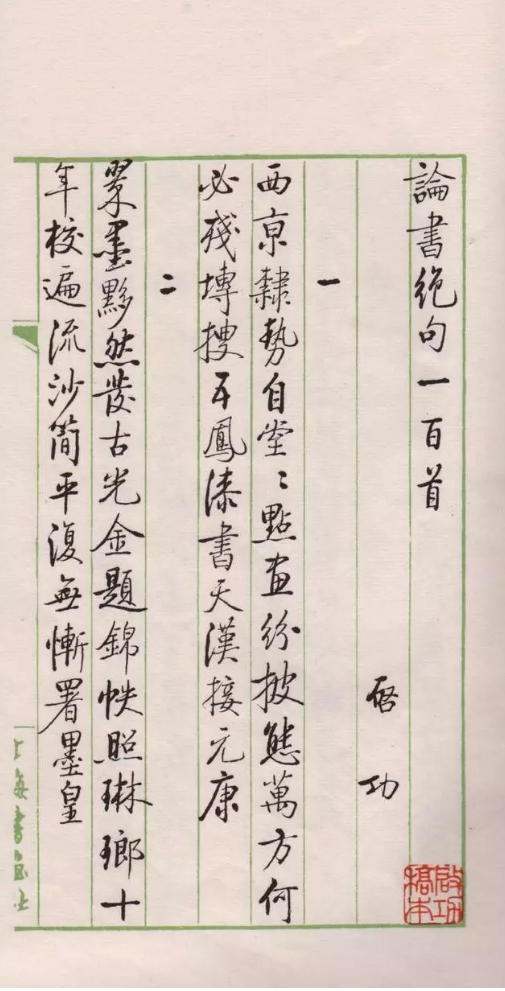 論書絕句一百首
启功
啟功稿本
一
西京隸勢自堂〻點畫紛披態萬方何
必殘塼搜五鳳漆書天漢接元康
二
翠墨黟然發古光金題錦帙照琳瑯十
年校遍流沙簡平復無慚署墨皇
上海書画社